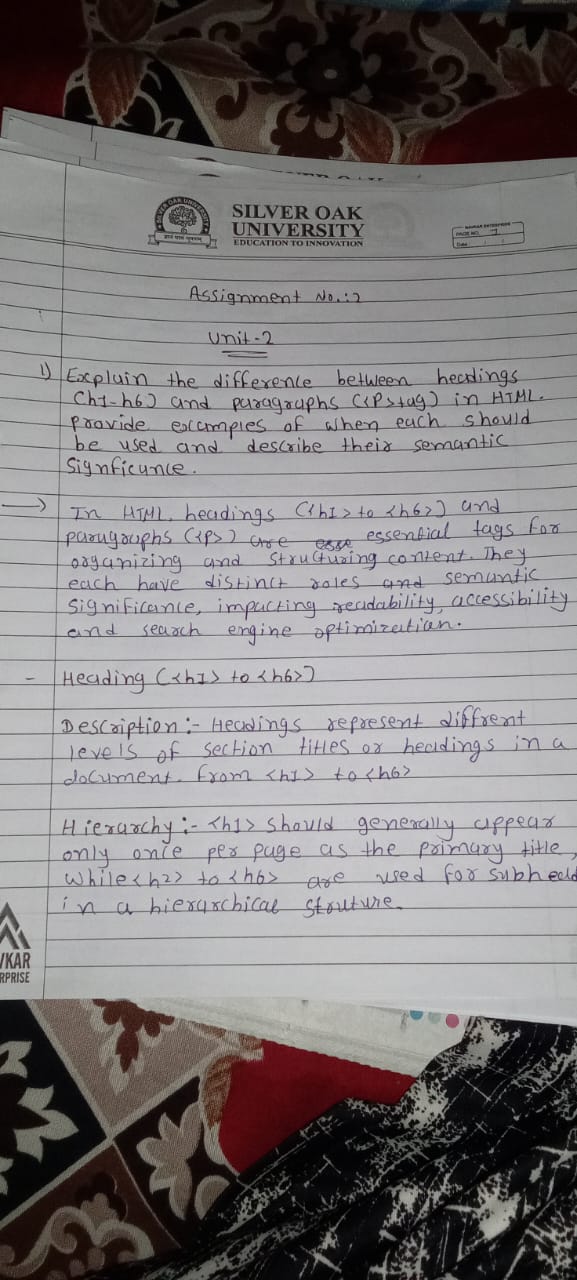 SILVER OAK UNIVERSITY
SILVER OAK
UNIVERSITY
EDUCATION TO INNOVATION
NAVKAR ENTERPRISE
PAGE NO. 1
Date: / /
Assignment No.:2
Unit-2
1) Explain the difference between headings
(h1-h6) and paragraphs (<P>tag) in HTML.
provide examples of when each should
be used and describe their semantic
Signficance.
→ In HTML, headings (<h1> to <h6>) and
paragraphs (<P>) are essential tags for
organizing and Structuring content. They
each have distinct roles and semantic
significance, impacting readability, accessibility
and search engine optimization.
- Heading (<h1> to <h6>)
Description:- Headings represent diffrent
levels of section titles or headings in a
document. from <h1> to <h6>
Hierarchy:- <h1> should generally appear
only once per page as the primary title,
while <h2> to <h6> are used for subhead
in a hierarchical strouture.
VKAR
RPRISE